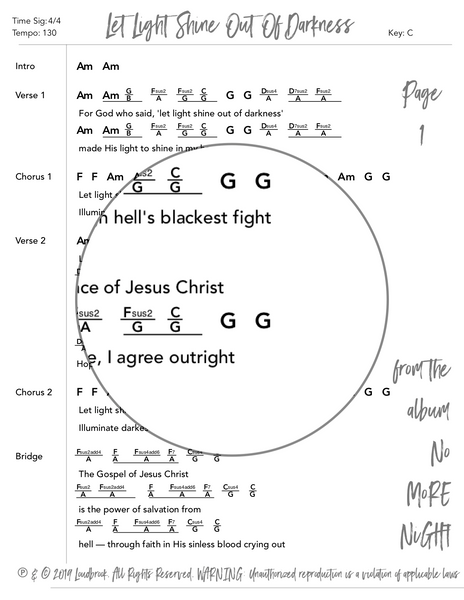 Time Sig:4/4
Let Light Shine Out Of Darkness
Tempo: 130
Key: C
Intro
Am Am
Verse 1
Am Am G/B Fsus2/A Fsus2/G C/G G G Dsus4/A D7sus2/A Fsus2/A
For God who said, 'let light shine out of darkness'
Am Am G/B Fsus2/A Fsus2/G C/G G G Dsus4/A D7sus2/A Fsus2/A
made His light to shine in my
Page
1
Chorus 1
F F Am G C/G G G Am G G
Let light
hell's blackest fight
Verse 2
of Jesus Christ
A Fsus2/G C/G G G
I agree outright
Chorus 2
F F G G
Let light
Illuminate
Bridge
Fsus2add4/A F/A Fsus4add6/A F7/A G G
The Gospel of Jesus Christ
Fsus2/A Fsus2add4/A F/A Fsus4add6/A F7/A Csus4/G C/G
is the power of salvation from
Fsus2add4/A F/A Fsus4add6/A F7/A Csus4/G C/G
hell — through faith in His sinless blood crying out
from the
album
No
MoRE
NiGHT
℗ & © 2019 Loudbrook. All Rights Reserved. WARNING: Unauthorized reproduction is a violation of applicable laws.